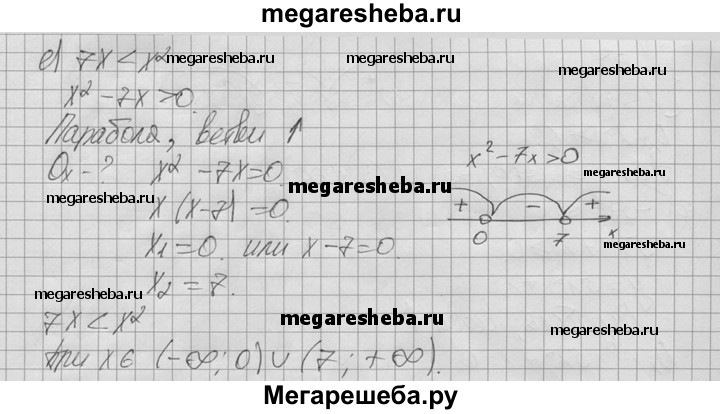 megaresheba.ru
е) 7x < x² megaresheba.ru megaresheba.ru megaresheba.ru
x² - 7x > 0.
Парабола, ветви ↑
Ox - ? x² - 7x = 0. x² - 7x > 0 megaresheba.ru
megaresheba.ru megaresheba.ru
x (x-7) = 0. + - +
x₁ = 0. или x - 7 = 0. 0 7 x megaresheba.ru
x₂ = 7.
megaresheba.ru
7x < x² megaresheba.ru megaresheba.ru
при x ∈ (-∞; 0) ∪ (7; +∞).
Мегарешеба.ру